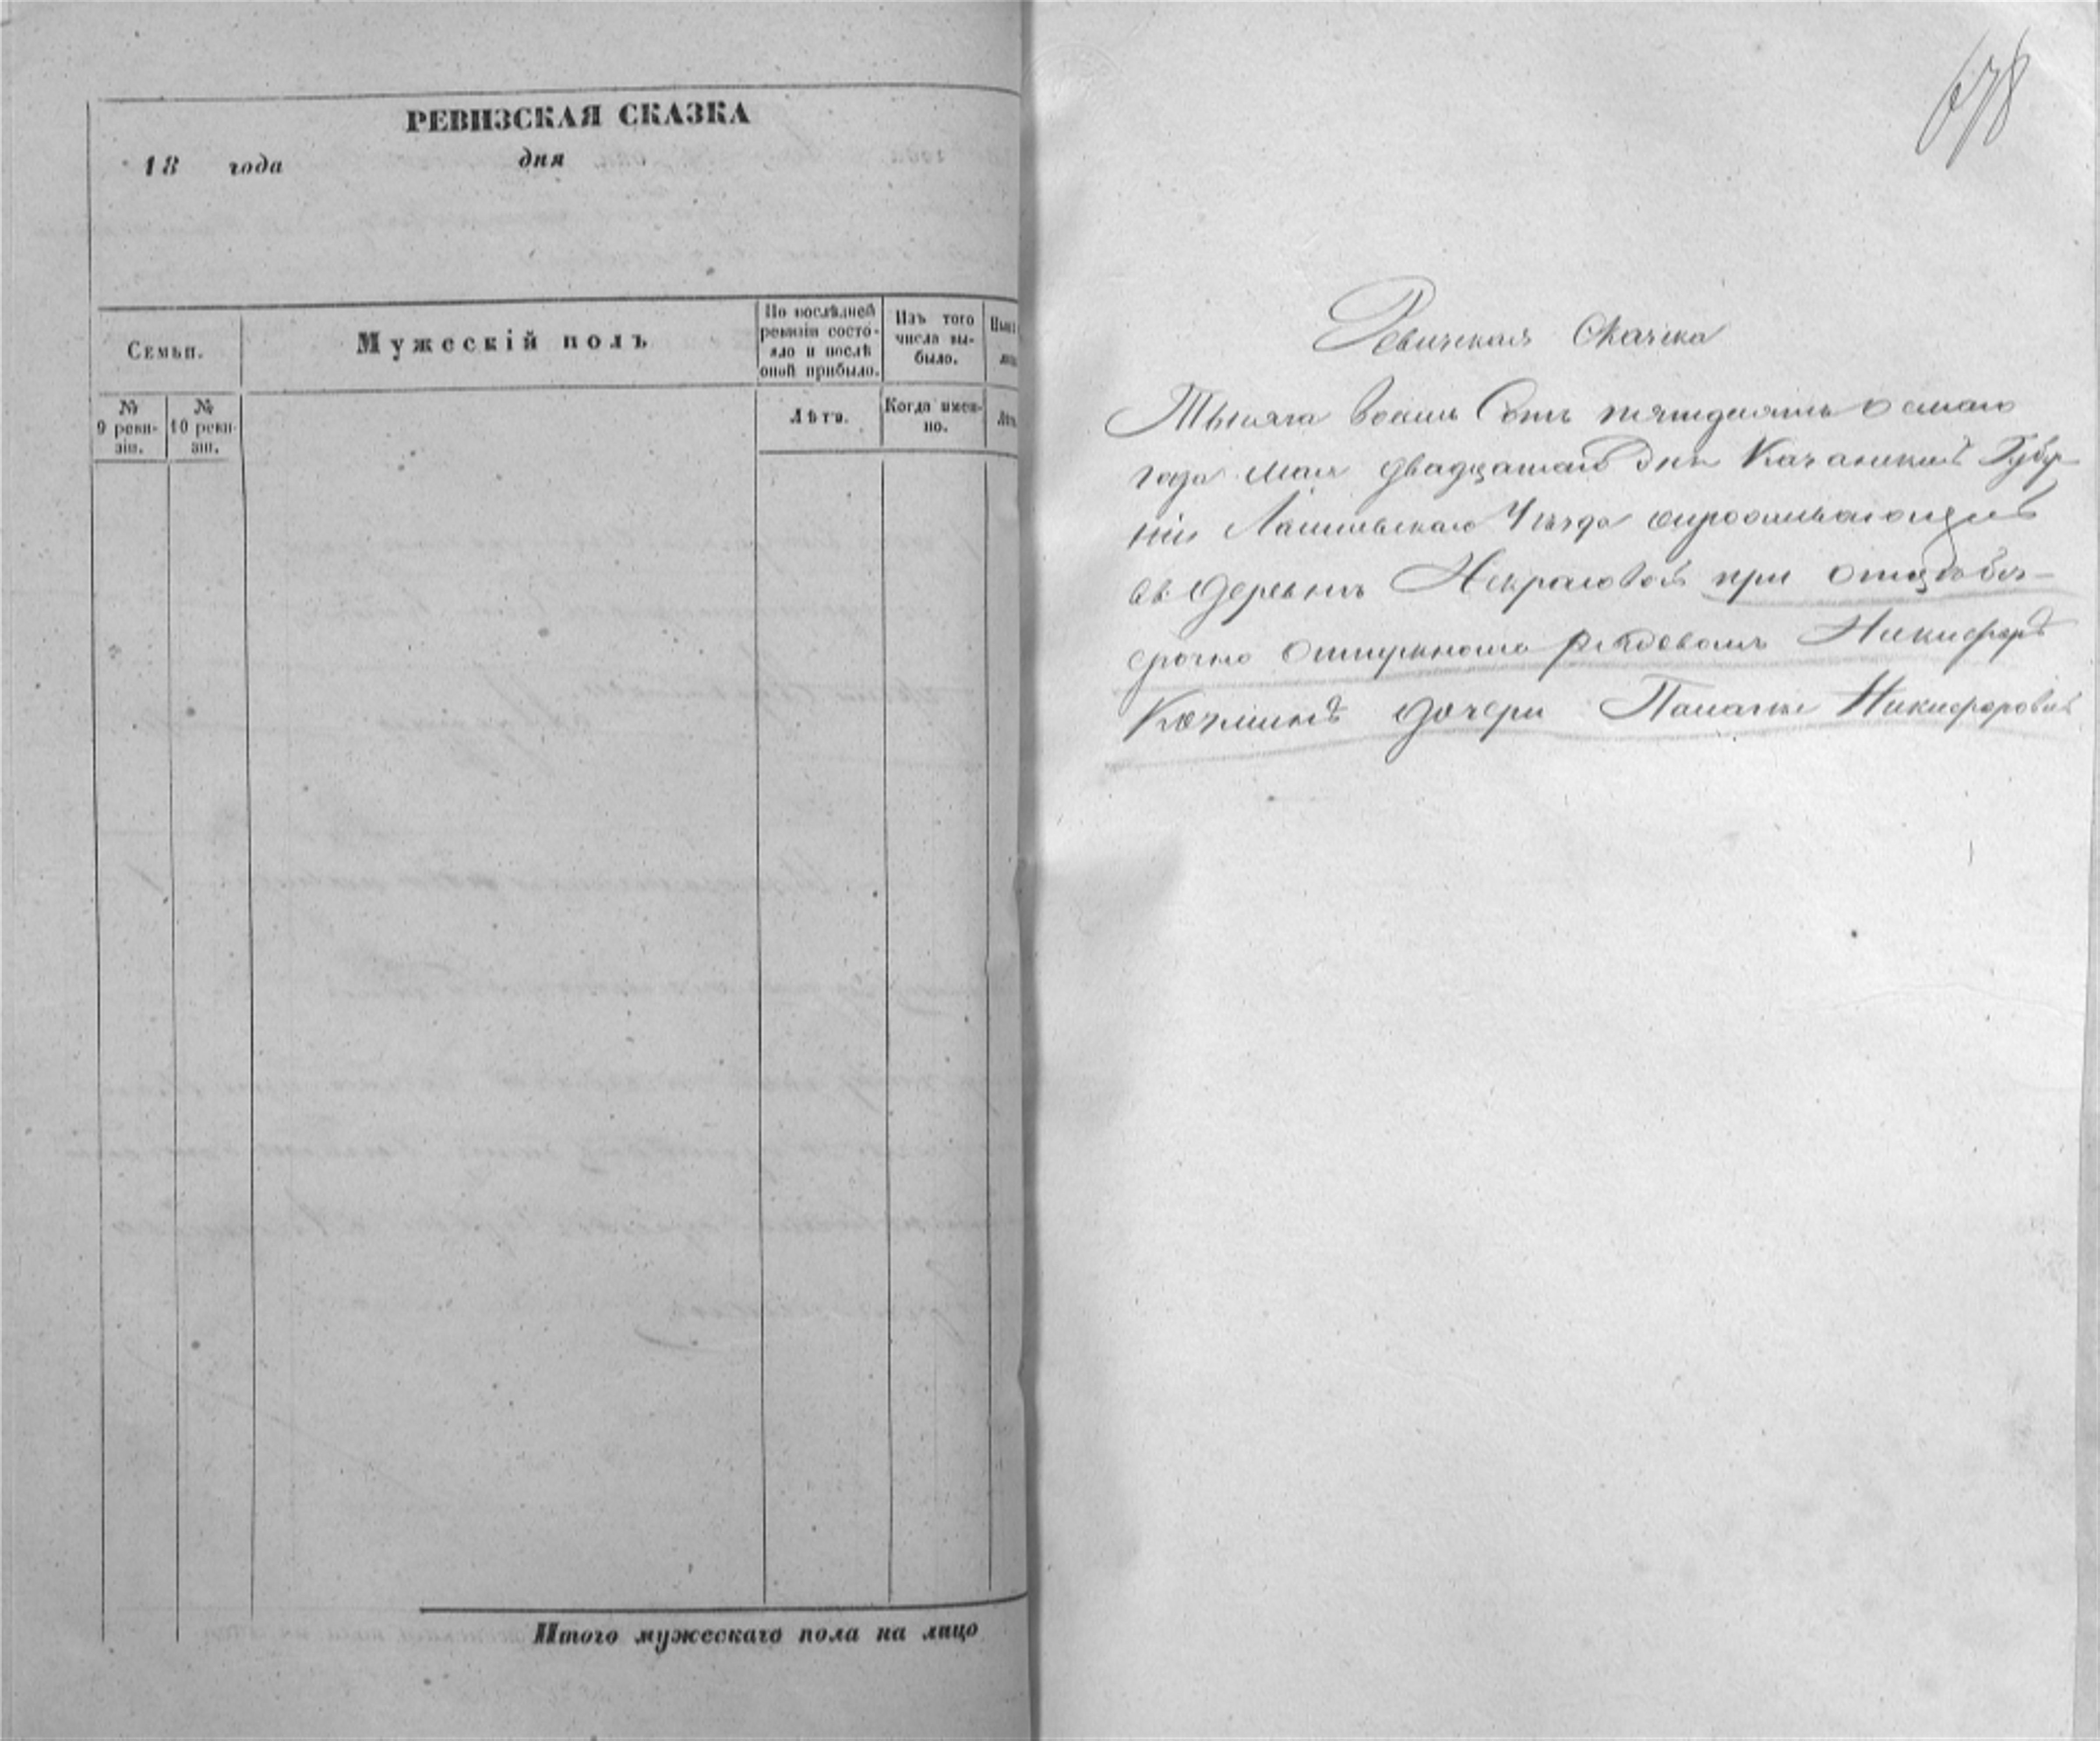 РЕВИЗСКАЯ СКАЗКА
18 года дня
Семьи.
Мужескій полъ
По послѣдней
ревизіи состо-
яло и послѣ
оной прибыло.
Изъ того
числа вы-
было.
№
9 реви-
зіи.
№
10 реви-
зіи.
Лѣта.
Когда имен-
но.
Итого мужескаго пола на лицо
678
Ревизская Сказка
Тысяча восемь Сотъ пятьдесятъ осмаго
года Мая двадцатаго дня Казанской Губер-
ніи Лаишевскаго Уѣзда
въ Деревнѣ Некрасовой при отцѣ без-
срочно отпускномъ рядовомъ Никифорѣ
Козминѣ дочери Никифоровой